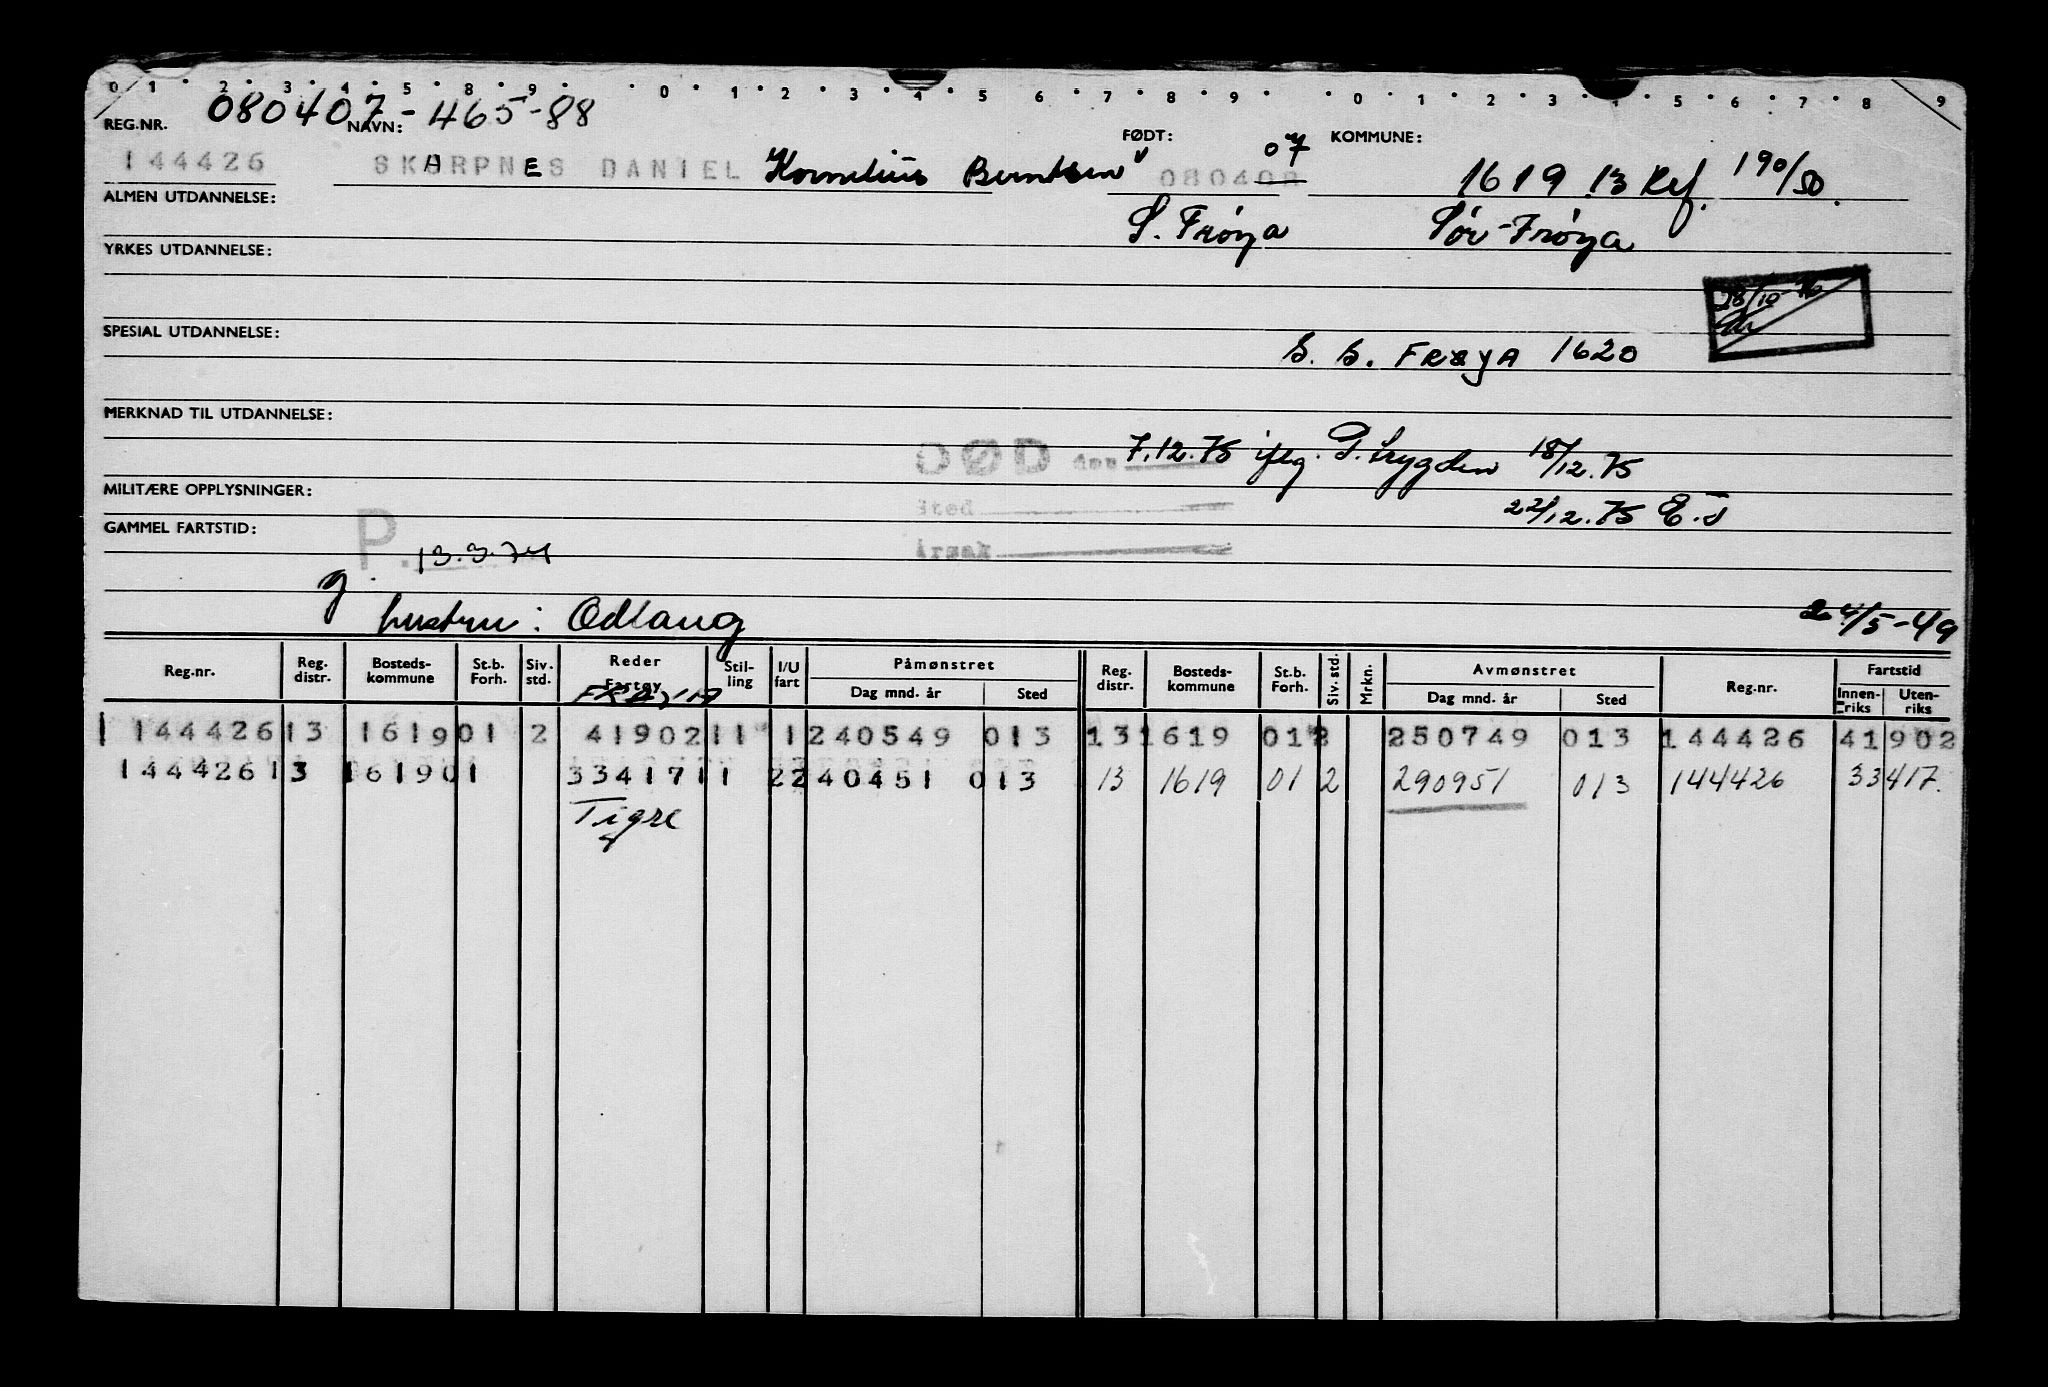 0 1 2 3 4 5 8 9 0 1 2 3 4 5 6 7 8 9 0 1 2 3 4 5 6 7 8 9
080407-465-88
REG.NR. NAVN: FØDT: KOMMUNE:
07
144426 SKARPNES DANIEL Kornelius Berntsen 080408 1619 13 Ref. 190/50.
ALMEN UTDANNELSE:
S. Frøya Sør-Frøya
YRKES UTDANNELSE:
28/10
SPESIAL UTDANNELSE:
S. S. FRØYA 1620
MERKNAD TIL UTDANNELSE:
DØD den 7.12.75 iflg. P.trygden 18/12.75
MILITÆRE OPPLYSNINGER:
Sted 22/12.75
GAMMEL FARTSTID:
P. 13.3.74 Årsak
g.
hustru: Odlaug 24/5-49
Reg.nr. Reg. distr. Bosteds-kommune St.b. Forh. Siv. std. Reder Fartøy Stil-ling I/U fart Påmønstret Dag mnd. år Sted Reg. distr. Bosteds-kommune St.b. Forh. Siv. std. Mrkn. Avmønstret Dag mnd. år Sted Reg.nr. Fartstid Innen-riks Uten-riks
FRØYA
144426 13 1619 01 2 41902 11 1 240549 013 13 1619 01 2 250749 013 144426 41902
144426 13 1619 01 33417 11 2 240451 013 13 1619 01 2 290951 013 144426 33417.
Tigre